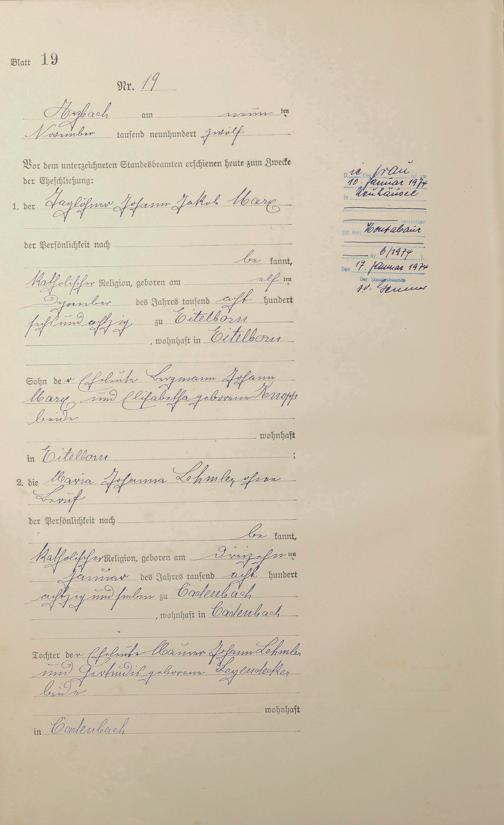 Blatt 19
Nr. 19
Arzbach am neun ten
November tausend neunhundert zwölf
Vor dem unterzeichneten Standesbeamten erschienen heute zum Zwecke
der Eheschließung:
1. der Taglöhner Johann Jakob Marx
der Persönlichkeit nach
be kannt,
katholischer Religion, geboren am elf ten
Dezember des Jahres tausend acht hundert
sechs und achtzig zu Eitelborn
, wohnhaft in Eitelborn
Sohn der Eheleute Bergmann Johann
Marx und Elisabetha geborene Knopp
beide
wohnhaft
in Eitelborn ;
2. die Maria Johanna Lehmler, ohne
Beruf
der Persönlichkeit nach
be kannt,
katholischer Religion, geboren am dreizehn ten
Januar des Jahres tausend acht hundert
achtzig und sieben zu Cadenbach
, wohnhaft in Cadenbach
Tochter der Eheleute Maurer Johann Lehmler
und Gertrudis geborene Legendecker
beide
wohnhaft
in Cadenbach
Frau
10. Januar 1974
Neuhäusel
Montabaur
Nr. 6/1974
Den 17. Januar 1974
Der Standesbeamte